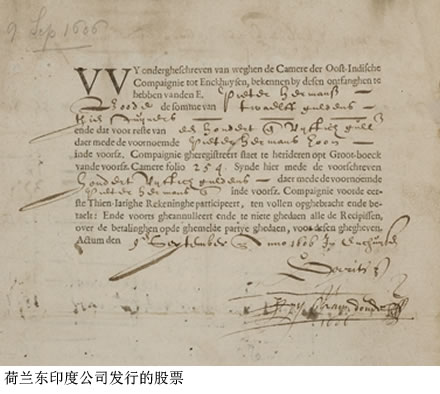 9 Sep 1606
VVY ondergheschreven van weghen de Camere der Oost-Indische
Compaignie tot Enckhuysen, bekennen by desen ontfanghen te
hebben vanden E. Pieter Hermansz
de somme van twaelff guldens
ende dat voor reste van een hondert vijftich gull
daer mede de voornoemde Pieter Hermans
inde voorsz. Compaignie gheregistreert staet te herideren op Groot-boeck
vande voorsz. Camere folio 254. Synde hier mede de voorschreven
hondert vijftich guldens daer mede de voornoemde
Pieter Hermans inde voorsz. Compaignie voorde eer-
ste Thien-Iarighe Rekeninghe participeert, ten vollen opghebracht ende be-
taelt: Ende voorts gheannulleert ende te niete ghedaen alle de Recipissen,
over de betalinghen opde ghemelde partye ghedaen, voor desen ghegheven.
Actum den 9 September Anno 1606
荷兰东印度公司发行的股票